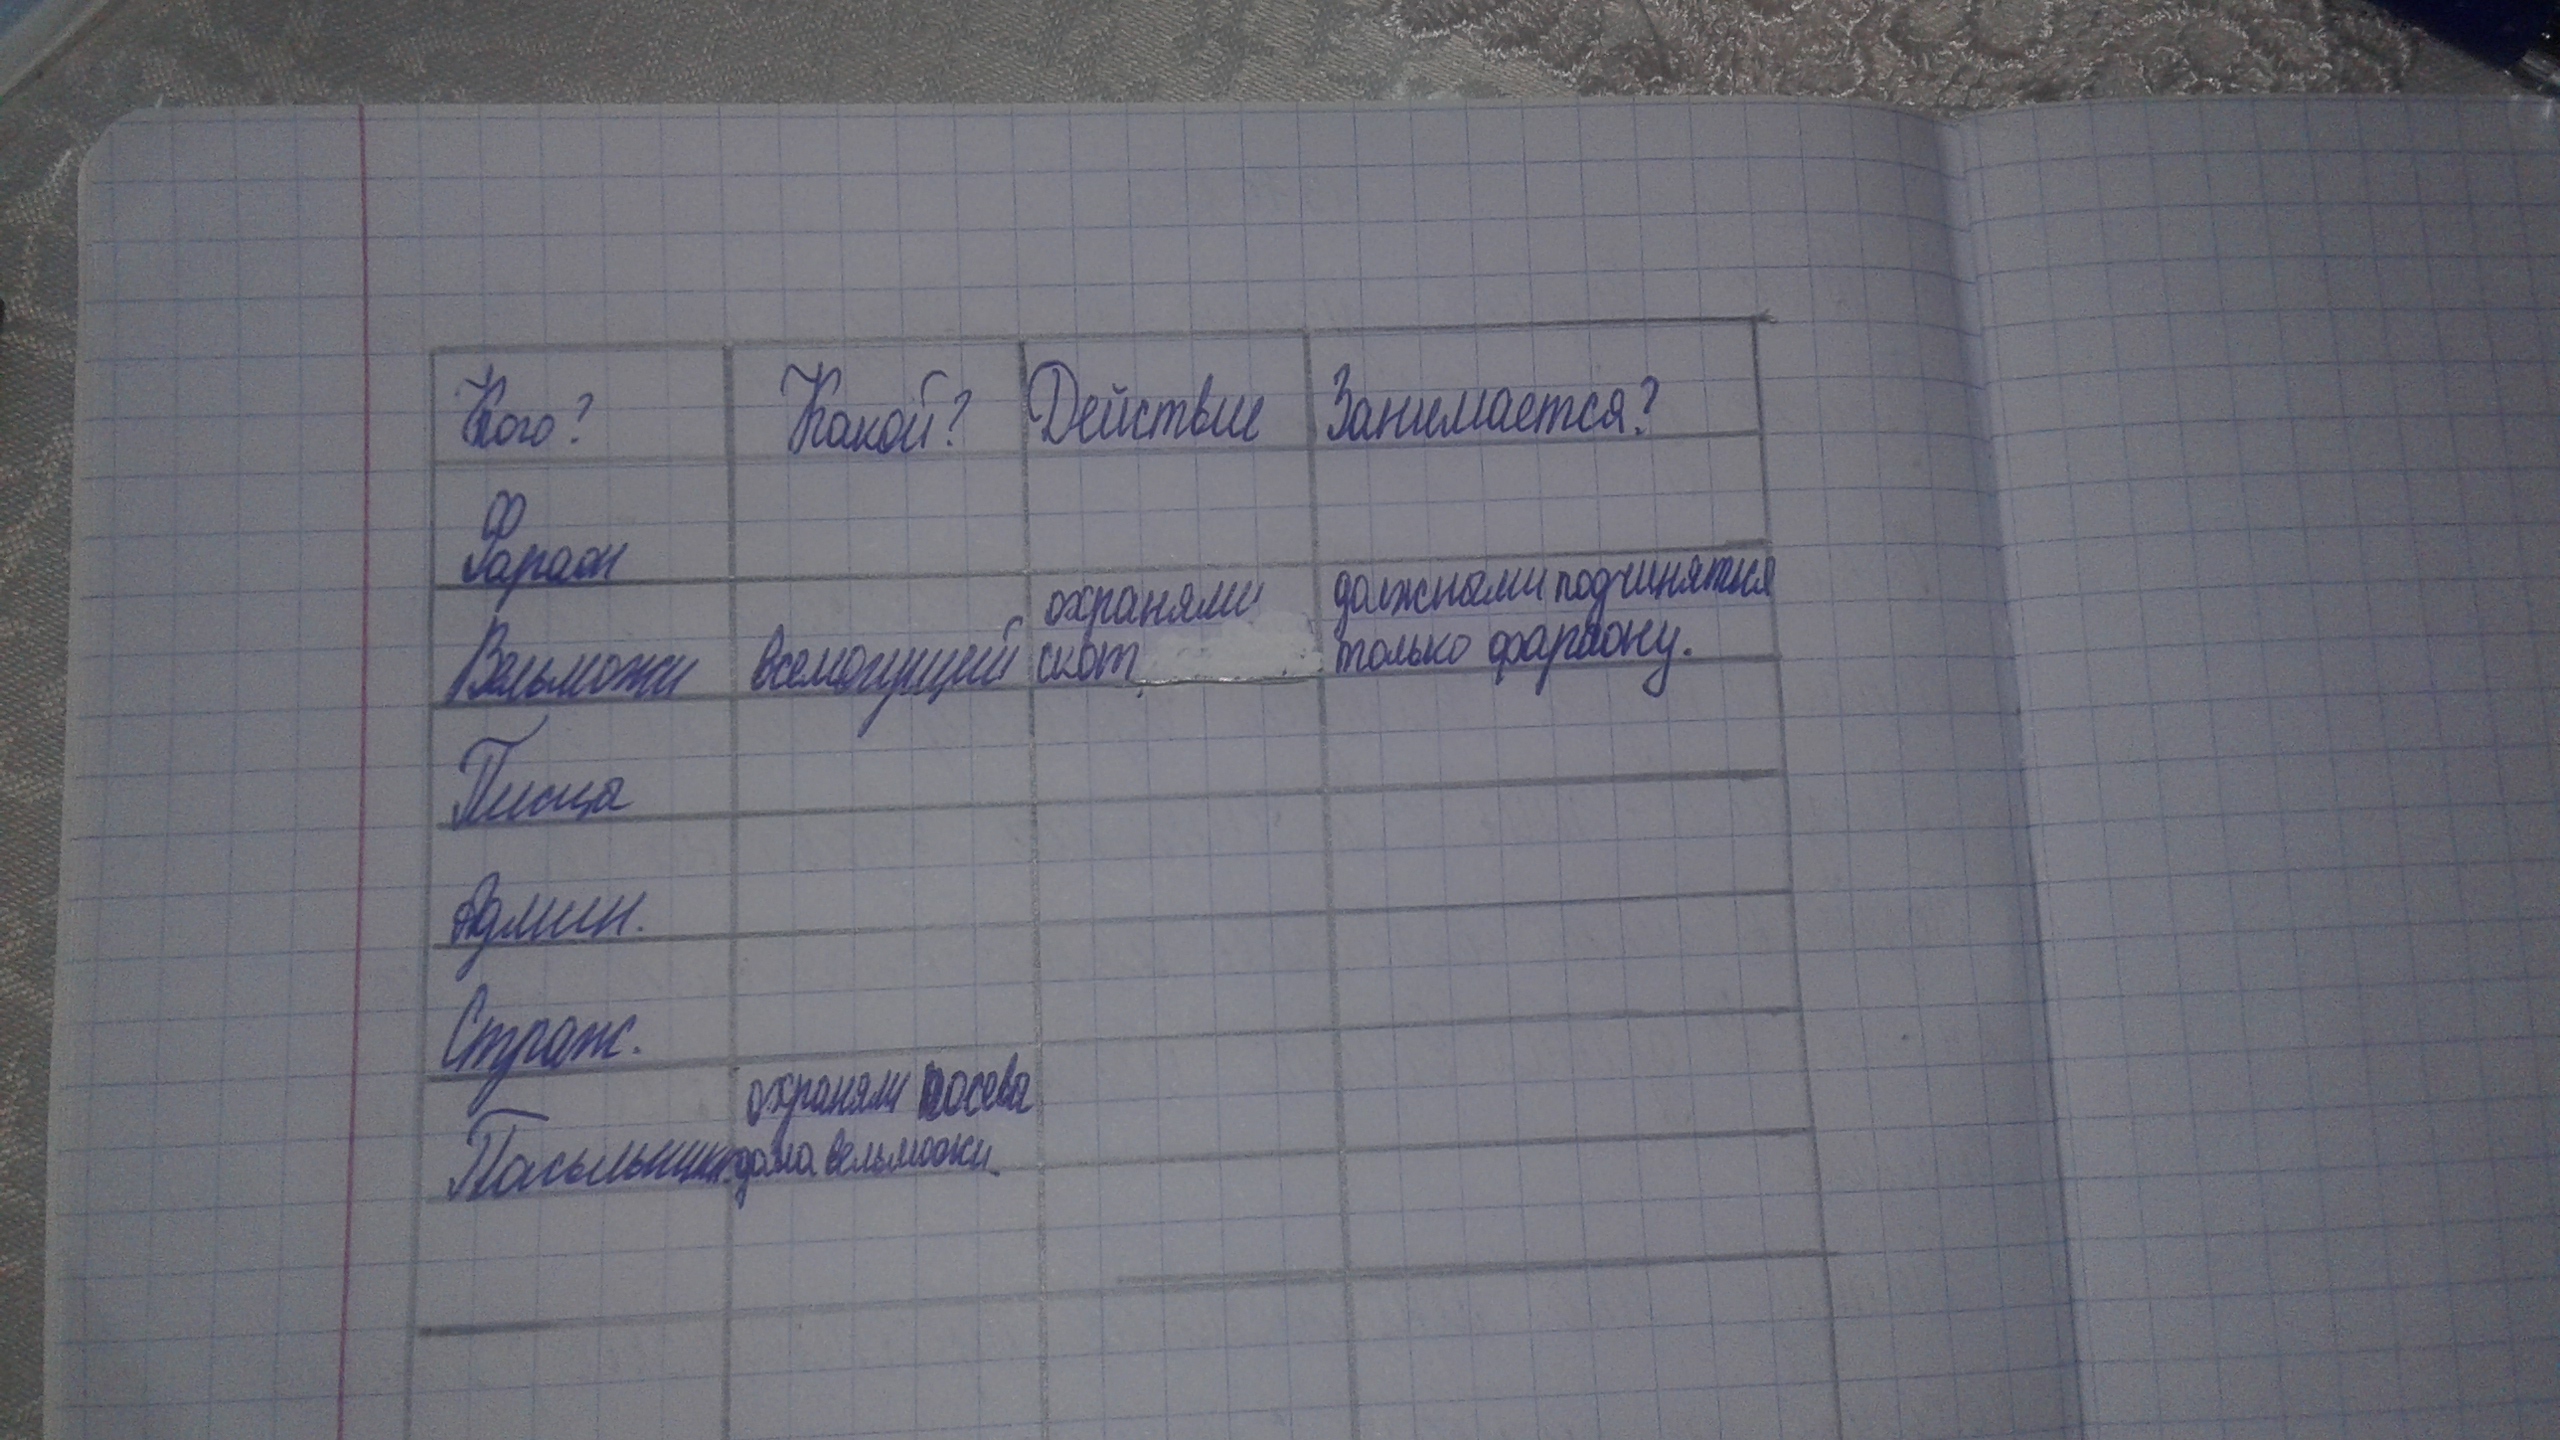 Кого? Какой? Действие Занимается?
Фараон
Вельможи всемогущий охраняли скот должными подчинятся только фараону.
Писца
Админ.
Страж.
охраняли посева
Посыльщик. дома вельможи.